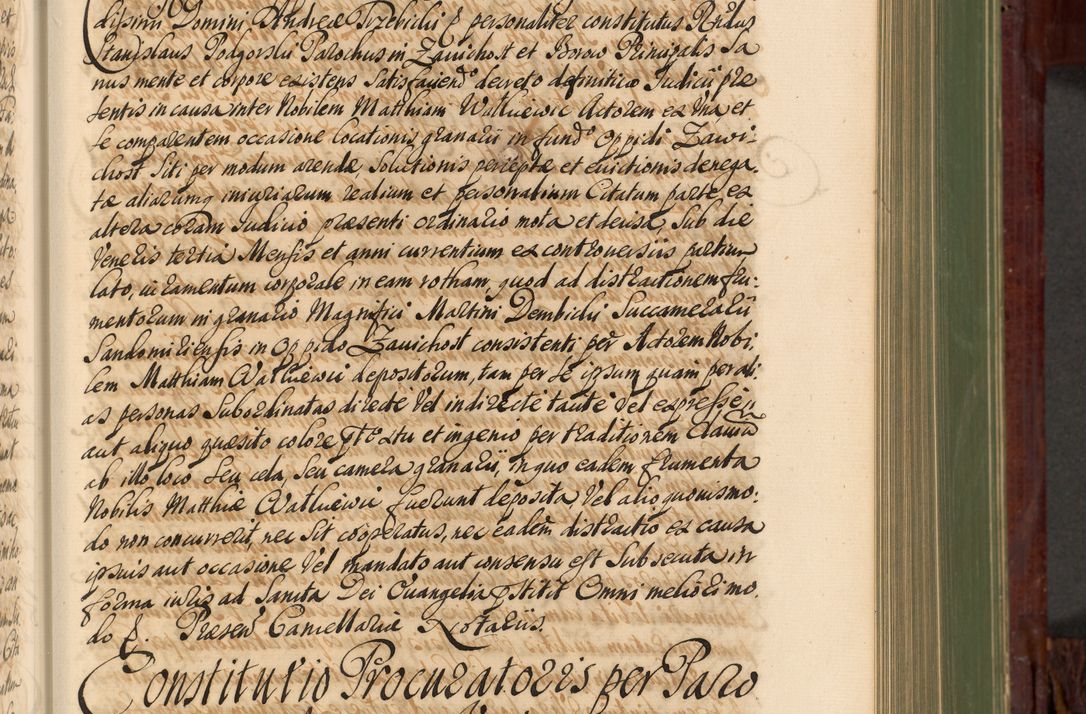 dissimi Domini Andreæ Trzebicki personaliter constitutus Rndus
Stanislaus Podgorski Parochus in Zauichost et Borow Principalis Sa
nus mente et corpore existens Satisfaciendo decreto definitivo Iudicii præ
sentis in causa inter Nobilem Matthiam Watlucewic Actorem ex una et
se comparentem occasione locationis granarii in fundo Oppidi Zawi-
chost Siti per modum arendæ, Solutionis perceptæ et euictionis denega-
tæ aliarumq iniuriarum realium et personalium Citatum parte ex
altera coram Iudicio præsenti ordinario mota et deuisa, Sub die
Veneris tertia Mensis et anni currentium ex controversiis partium
lato, iuramentum corporale in eam rotham, quod ad distractionem fru-
mentorum in granario Magnifici Martini Dembicki Succamerarii
Sandomiriensis in Oppido Zauichost consistenti per Actorem Nobi-
lem Matthiam Watluewic depositorum, tam per se ipsum quam per ali-
as personas Subordinatas directe Vel indirecte tacite Vel expresse
aut aliquo quæsito colore et ingenio per traditionem Clauiu
ab illo loco Seu cela, Seu camera granarii, in quo eadem frumenta
Nobilis Matthiæ Watluewic fuerunt deposita, Vel alio quouismo-
do non concurrerit, nec Sit cooperatus, nec eadem distractio ex causa
ipsius aut occasione Vel mandato aut consensu est Subsecuta in
forma iuris ad Sancta Dei Euangelia pstitit Omni meliori mo-
do &. Præsen Cancellariæ Notariis.
Constitutio Procuratoris per Paro